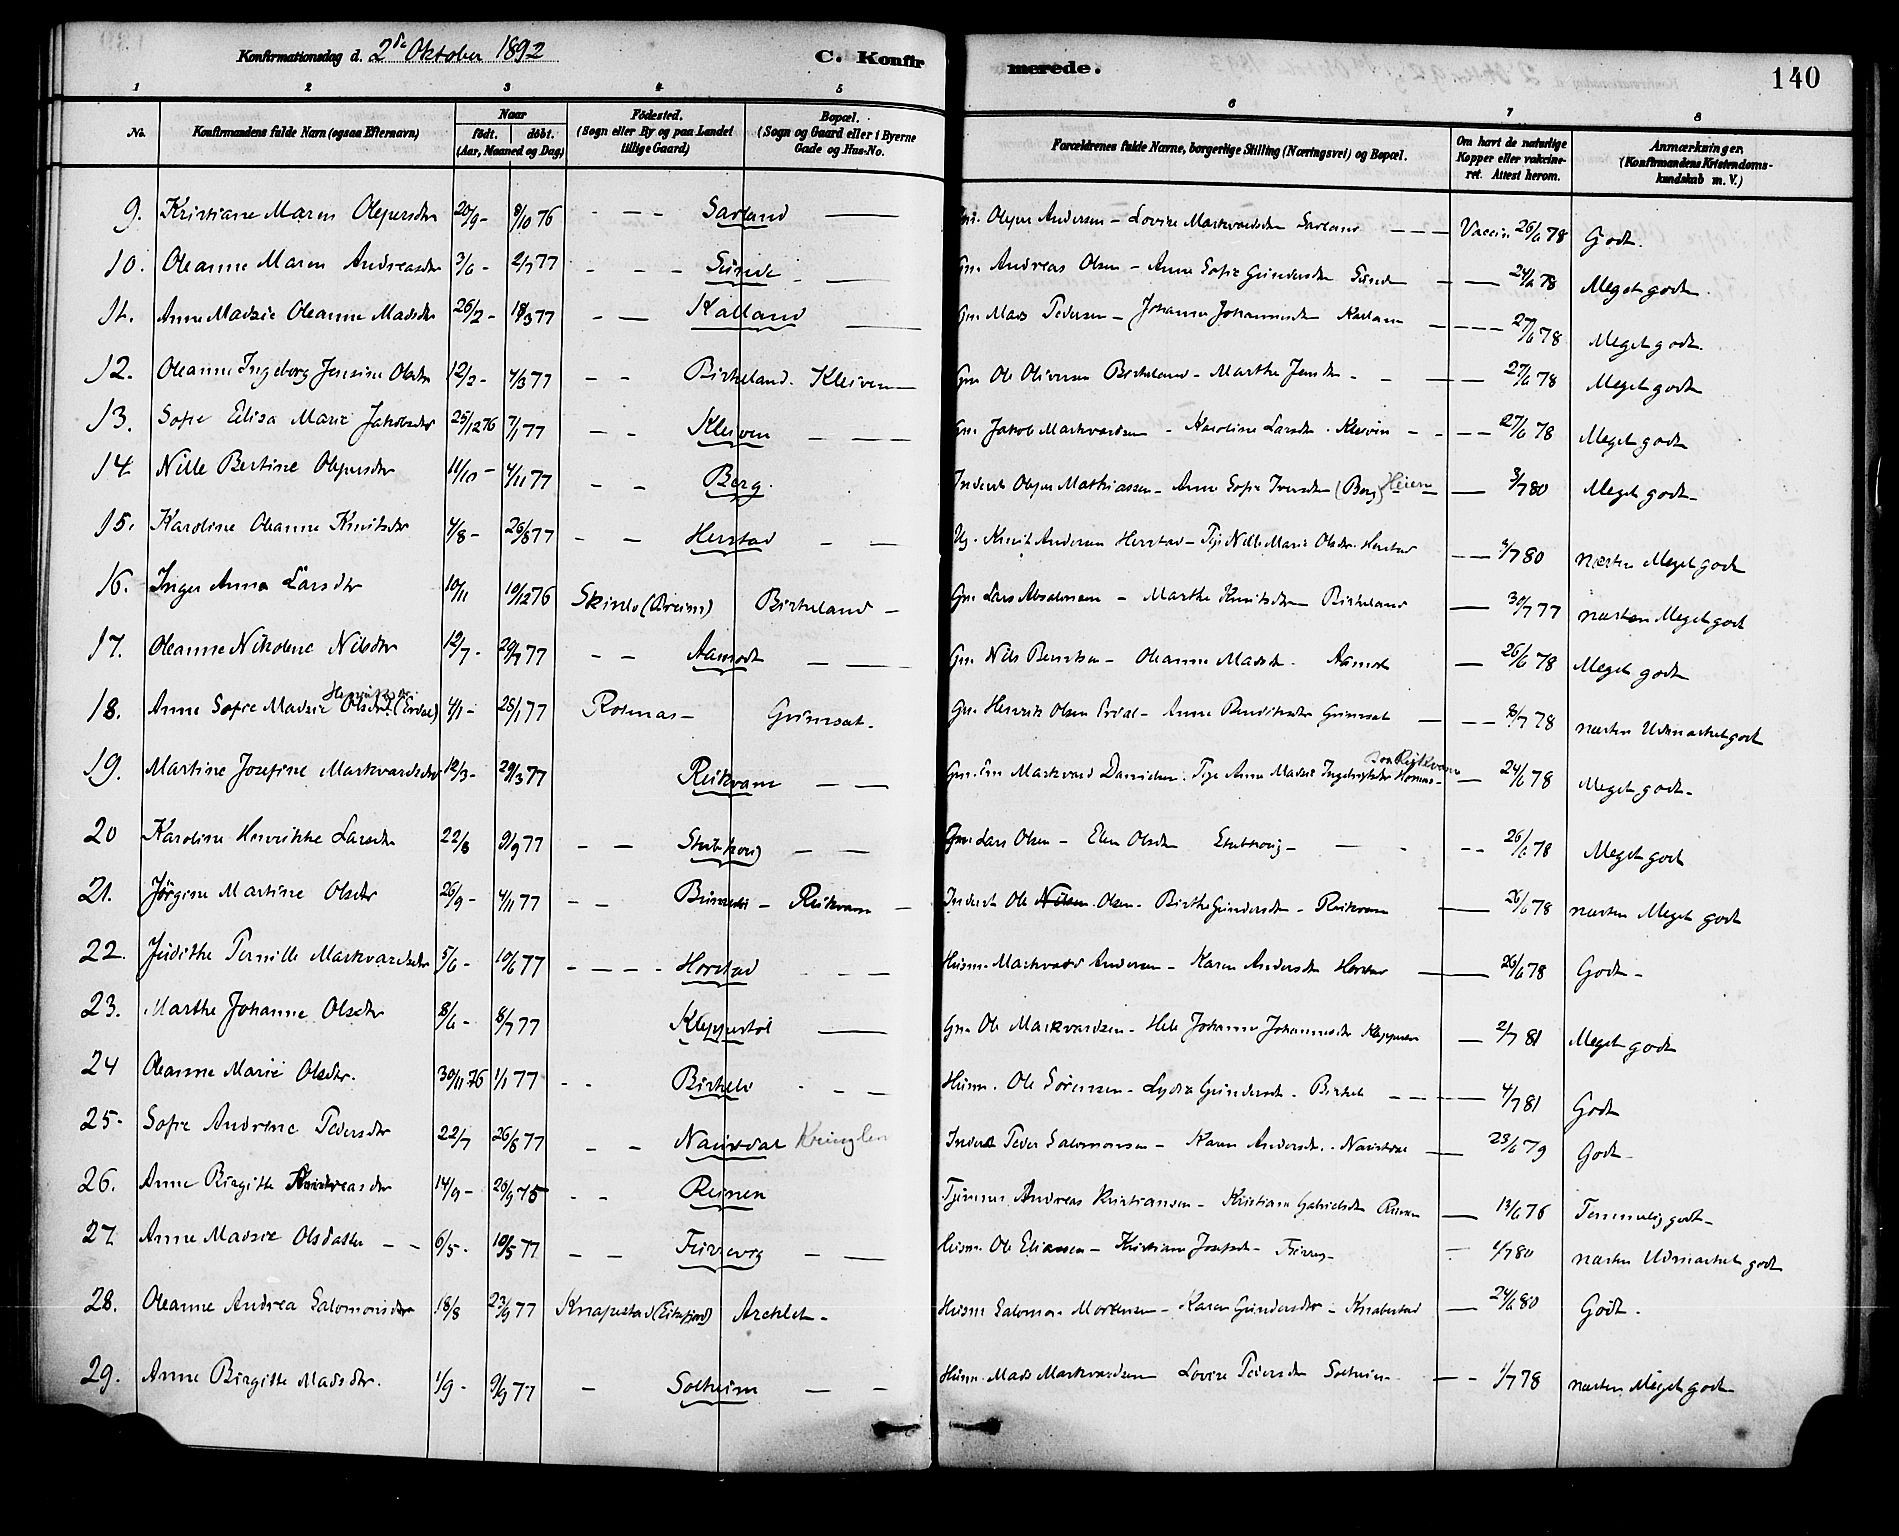 Konfirmationsdag d. 2de Oktober 1892 C. Konfirmerede. 140
1 2 3 4 5 6 7 8
No. Konfirmandens fulde Navn (ogsaa Efternavn) Naar födt. döbt. (Aar, Maaned og Dag) Födested. (Sogn eller By og paa Landet tillige Gaard) Bopæl. (Sogn og Gaard eller i Byerne Gade og Hus-No. Forældrenes fulde Navne, borgerlige Stilling (Næringsvei) og Bopæl. Om havt de naturlige Kopper eller vaccineret. Attest herom. Anmærkninger. (Konfirmandens Kristendomskundskab m. V.)
9. Kristiane Maren Olepersdtr 20/9 - 8/10 76 - - - Sørland — Gm. Oleper Andersen - Lovise Markvardsdtr Sørland - - - Vaccin. 26/6 78 Godt.
10. Oleanne Maren Andreasdtr 3/6 - 2/7 77 - - - Sunde - — Gm. Andreas Olsen - Anne Sofie Gundersdtr Sunde - — 24/6 78 Meget godt.
11. Anne Madzie Oleanne Madsdtr 26/2 - 18/3 77 - — Kalland — Gm Mads Pedersen - Johanne Johannesdtr Kalland - - - - 27/6 78 Meget godt.
12. Oleanne Ingeborg Jensine Olsdtr 12/2 - 4/3 77 - - Birkeland. Kleiven — Gm Ole Oliversen Birkeland - Marthe Jensdtr - - — 27/6 78 Meget godt
13. Sofie Elisa Marie Jakobsdtr 25/12 76 7/1 77 - - Kleiven - — Gm. Jakob Markvardsen - Karoline Larsdtr. Kleiven - - - - 27/6 78 Meget godt
14. Nille Bertine Olepersdtr 11/10 - 4/11 77 - - Berg. Inderst Oleper Mathiassen - Anne Sofie Iversdtr (Berg) Heien — 3/7 80 Meget godt -
15. Karoline Oleanne Knutsdtr 4/8 - 26/8 77 - - Herstad - — Ug. Knut Andersen Herstad - Pige Nille Marie Olsdtr. Herstad - - 4/7 80 næsten Meget godt
16. Inger Anna Larsdtr 10/11 10/12 76 Skinlo (Breim) Birkeland - Gm Lars Absalonsen - Marthe Knutsdtr Birkeland — 30/7 77 næsten Meget godt
17. Oleanne Nikoline Nilsdtr 12/7 - 29/7 77 - - Aamodt - — Gm Nils Berntsen - Oleanne Madsdt. Aamodt — 26/6 78 Meget godt
18. Anne Sofie Madzie Henriksdtr. Olsdtr (Erdal) 4/1 - 28/1 77 - Grimset. Gm. Henrik Olsen Erdal - Anne Bendiksdtr Grimset — - - 8/7 78 næsten Udmærket godt
19. Martine Josefine Markvardsdtr 12/3 - 29/3 77 Reikvam - — Gm. Markvard Danielsen. Pige Anne Madzie — 24/6 78 Meget godt -
20 Karoline Henrikke Larsdtr 22/8 9/9 77 - - Stubhoug - — Gm Lars Olsen - Elen Olsdtr Stubhoug - — - - - 26/6 78 Meget godt
21. Jørgine Martine Olsdtr 26/9 - 4/11 77 - - - Reikvam - Inderst Ole Nilsen Olsen - Birthe Gundersdtr - Reikvam — 26/6 78 næsten Meget godt
22. Judithe Pernille Markvardsdtr 5/6 - 10/6 77 - - - - Horstad - - - Husm. Markvard Andersen - Karen Andersdtr Horstad — 26/6 78 Godt -
23. Marthe Johanne Olsdtr 8/6 - 8/7 77 Kleppestøl — Gm Ole Markvardsen - Johanne Johannesdtr — 2/7 81 Meget godt
24 Oleanne Marie Olsdtr. 30/11 76 1/1 77 - - Birkelo - - - Husm. Ole Sørensen - Lydia Gundersdt. Birkel - - - — 4/7 81 Godt
25. Sofie Andrine Pedersdtr 22/7 26/8 77 - - Naustdal Kringlen Inderst Peder Salomonsen - Karen Andersdt. - Naustdal — 23/6 79 Godt -
26. Anne Birgitte Andreasdtr 14/9 - 26/9 75 - - Reinen Andreas Kristiansen - Kristiane Gabrielsdt Reinen — 13/6 76 Temmelig godt -
27 Anne Madzie Olsdatter - - 6/5 - 10/5 77 - - Furevig - — Husm. Ole Eliassen - Kristiane Josefsdt - Furevig - 1/7 80 næsten Udmærket godt
28. Oleanne Andrea Salomonsdtr 18/8 23/9 77 Knapestad (Eikefjord) Areklet - Husm Salomon Mortensen - Karen Gundersdtr - Knabestad — 24/6 80 Godt.
29. Anne Birgitte Madsdtr. 1/9 - 9/9 77 - Solheim - - Husm. Mads Markvardsen Lovise Pedersdtr Solheim - - - 1/7 78 næsten Meget godt